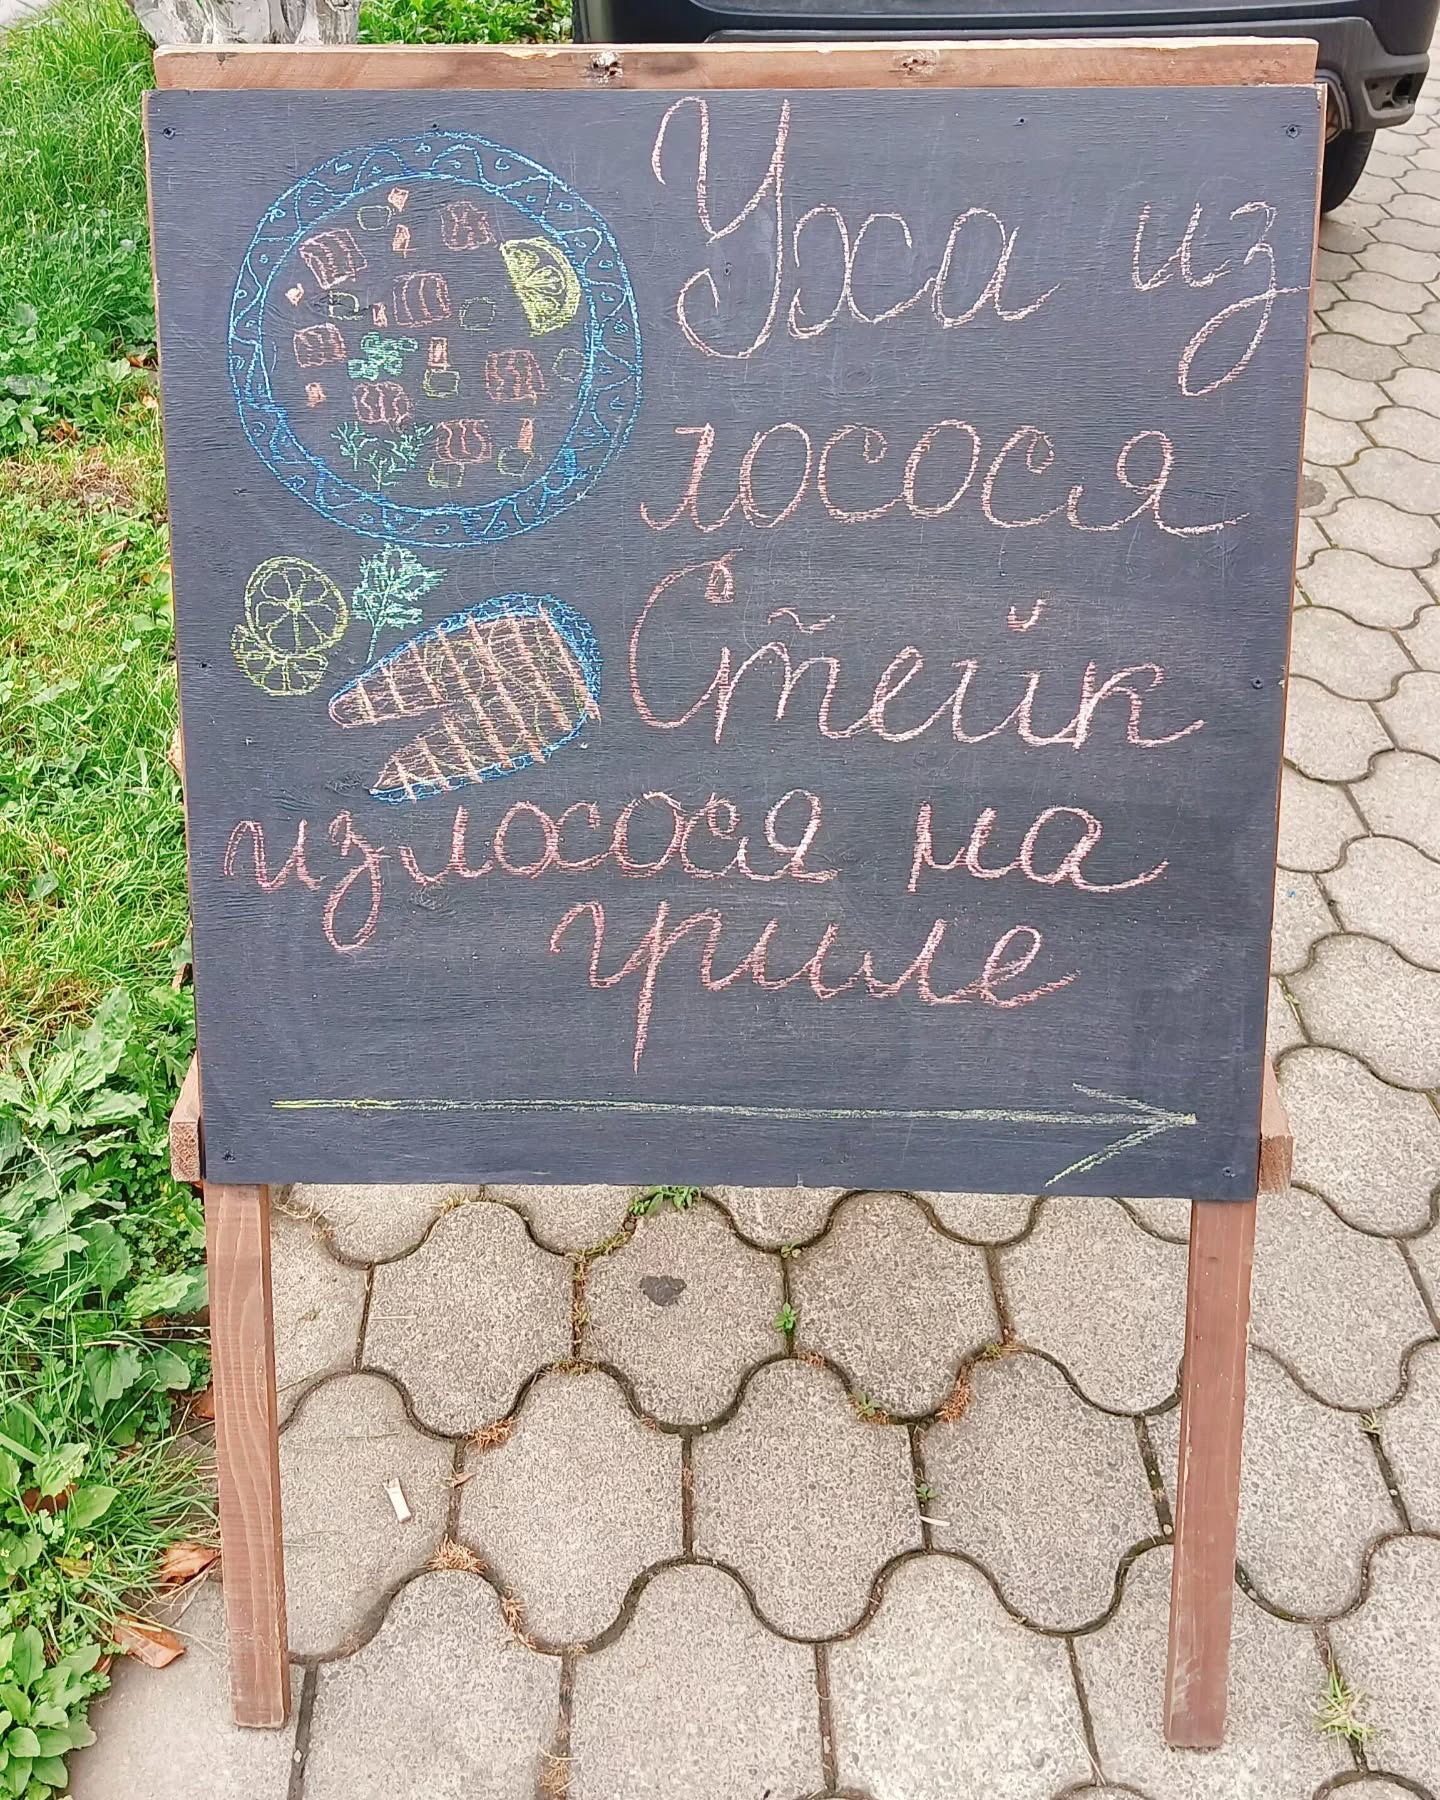 Уха из
лосося
Стейк
из лосося на
гриле